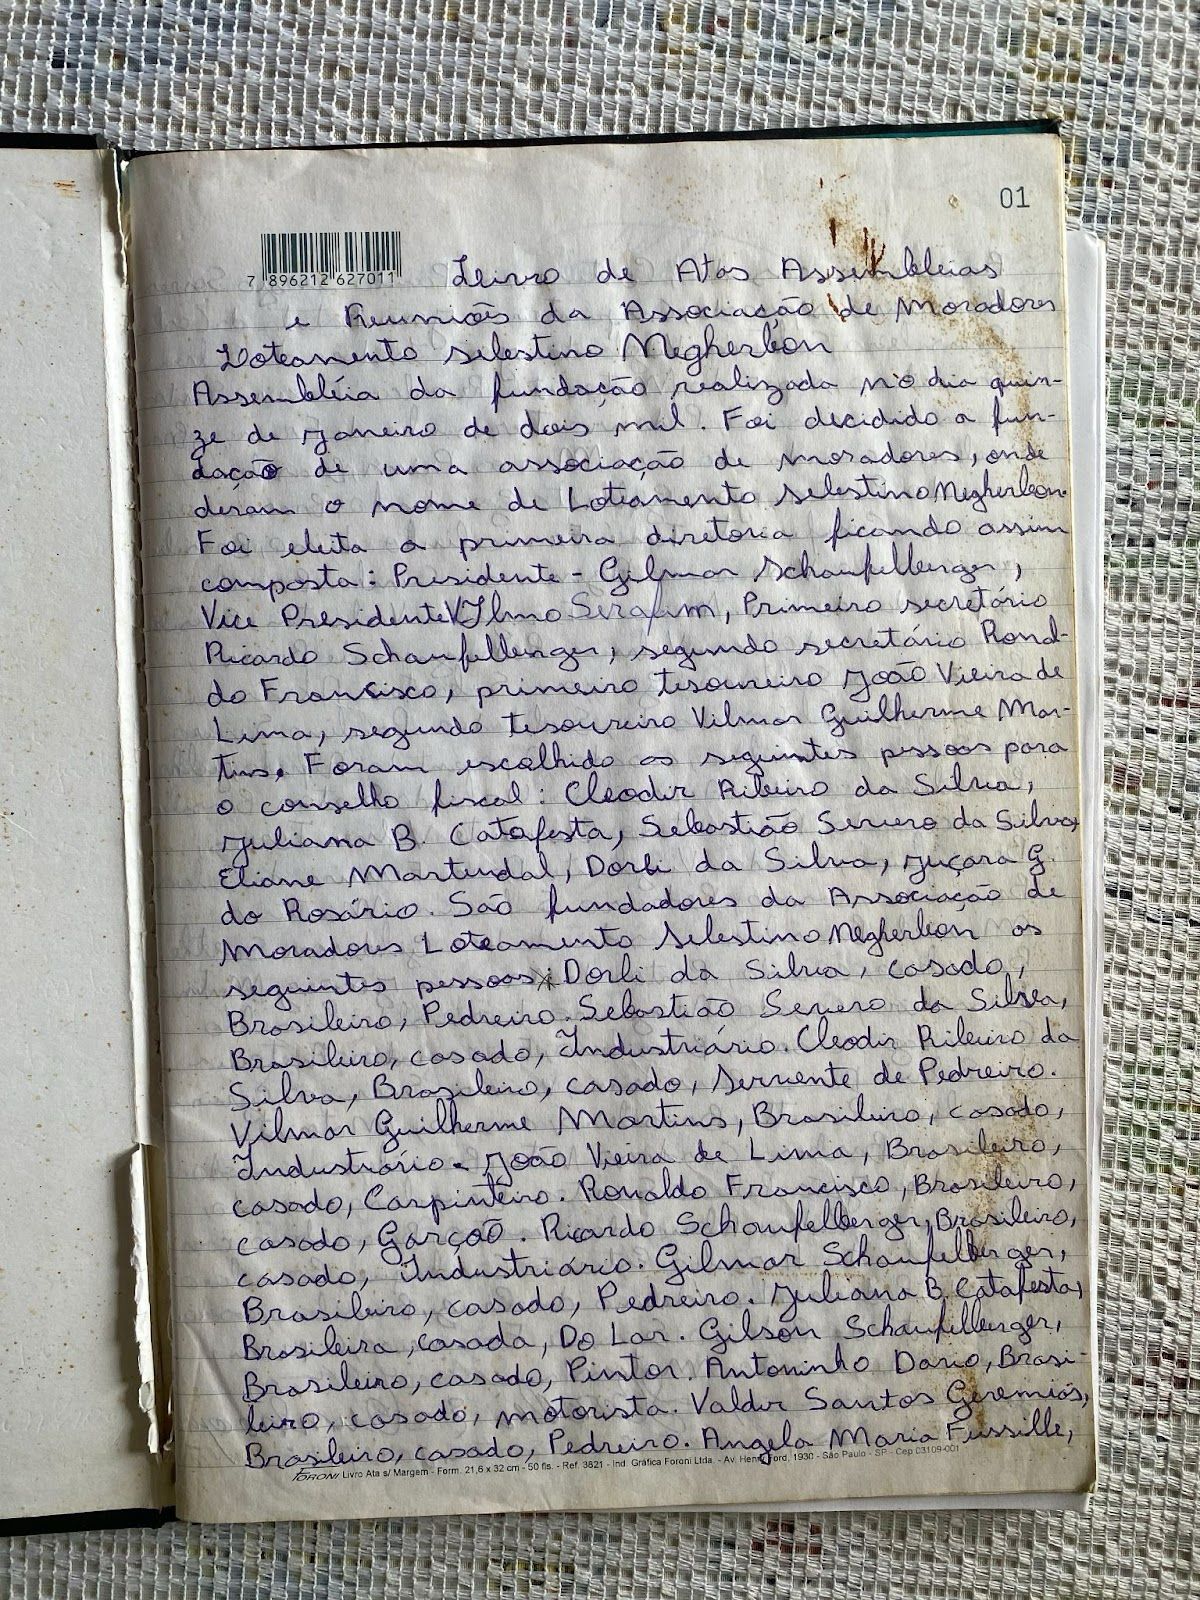 01
7 896212 627011
Leivro de Atas Assembleias
e Reuniões da Associação de Moradores
Loteamento Selestino Megherbon
Assembléia da fundação realizada no dia quin-
ze de janeiro de dois mil. Foi decidido a fun-
dação de uma associação de moradores, onde
deram o nome de Loteamento Selestino Megherbon.
Foi eleita a primeira diretoria ficando assim
composta: Presidente - Gilmar Schaufelberger,
Vice Presidente Ilmo Serafim, Primeiro secretário
Ricardo Schaufellberger, segundo secretário Ronal-
do Francisco, primeiro tesoureiro João Vieira de
Lima, segundo tesoureiro Vilmar Guilherme Mar-
tins. Foram escolhido as seguintes pessoas para
o conselho fiscal: Cleodir Ribeiro da Silva,
Juliana B. Catafesta, Sebastião Severo da Silva,
Eliane Martendal, Dorli da Silva, Juçara G.
do Rosário. São fundadores da Associação de
Moradores Loteamento Selestino Megherbon as
seguintes pessoas: Dorli da Silva, casado,
Brasileiro, Pedreiro. Sebastião Severo da Silva,
Brasileiro, casado, Industriário. Cleodir Ribeiro da
Silva, Brasileiro, casado, Servente de Pedreiro.
Vilmar Guilherme Martins, Brasileiro, casado,
Industriário. João Vieira de Lima, Brasileiro,
casado, Carpinteiro. Ronaldo Francisco, Brasileiro,
casado, Garção. Ricardo Schaufelberger, Brasileiro,
casado, Industriário. Gilmar Schaufelberger,
Brasileiro, casado, Pedreiro. Juliana B. Catafesta,
Brasileira, casada, Do Lar. Gilson Schaufellberger,
Brasileiro, casado, Pintor. Antoninho Dario, Brasi-
leiro, casado, motorista. Valdir Santos Geremias,
Brasileiro, casado, Pedreiro. Angela Maria Fussille,
FORONI Livro Ata s/ Margem - Form. 21,6 x 32 cm - 50 fls. - Ref. 3621 - Ind. Gráfica Foroni Ltda. - Av. Henry Ford, 1930 - São Paulo - SP - Cep 03109-001